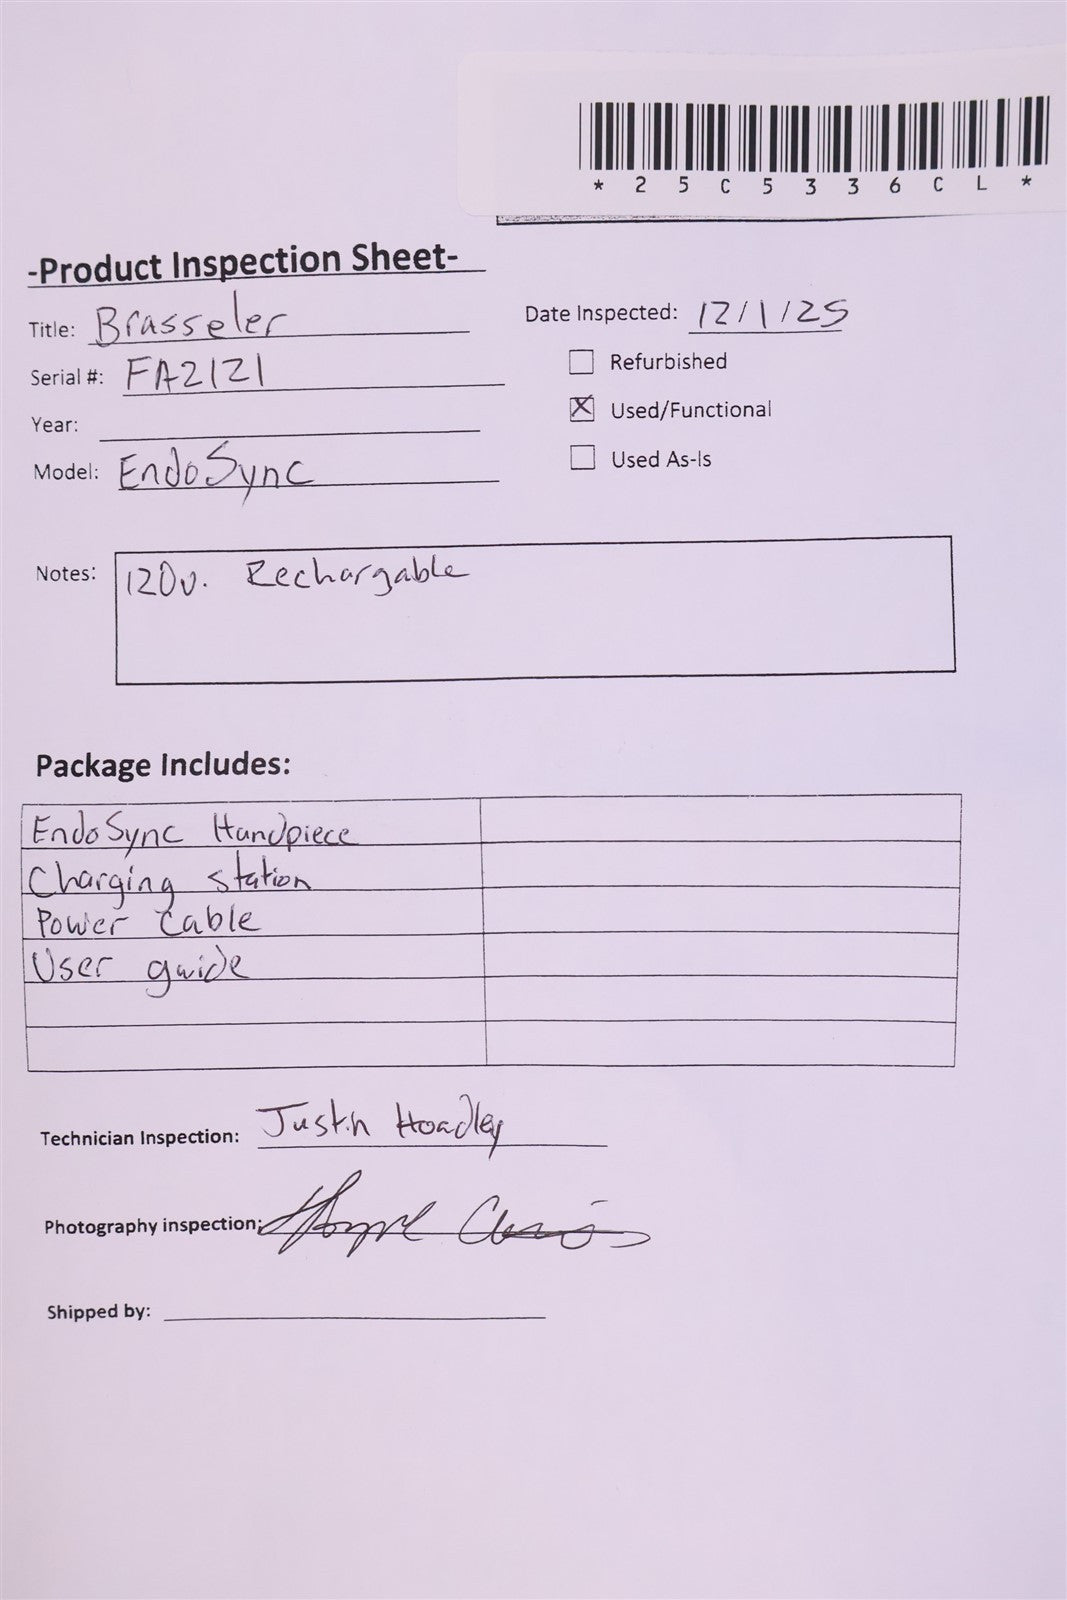 *25C5336CL*
-Product Inspection Sheet-
Title: Brasseler
Date Inspected: 12/1/25
Serial #: FA2121
Refurbished
Year:
X Used/Functional
Model: EndoSync
Used As-Is
Notes: 120v. Rechargable
Package Includes:
EndoSync Handpiece
Charging station
Power Cable
User guide
Technician Inspection: Justin Hoadley
Photography inspection:
Shipped by: